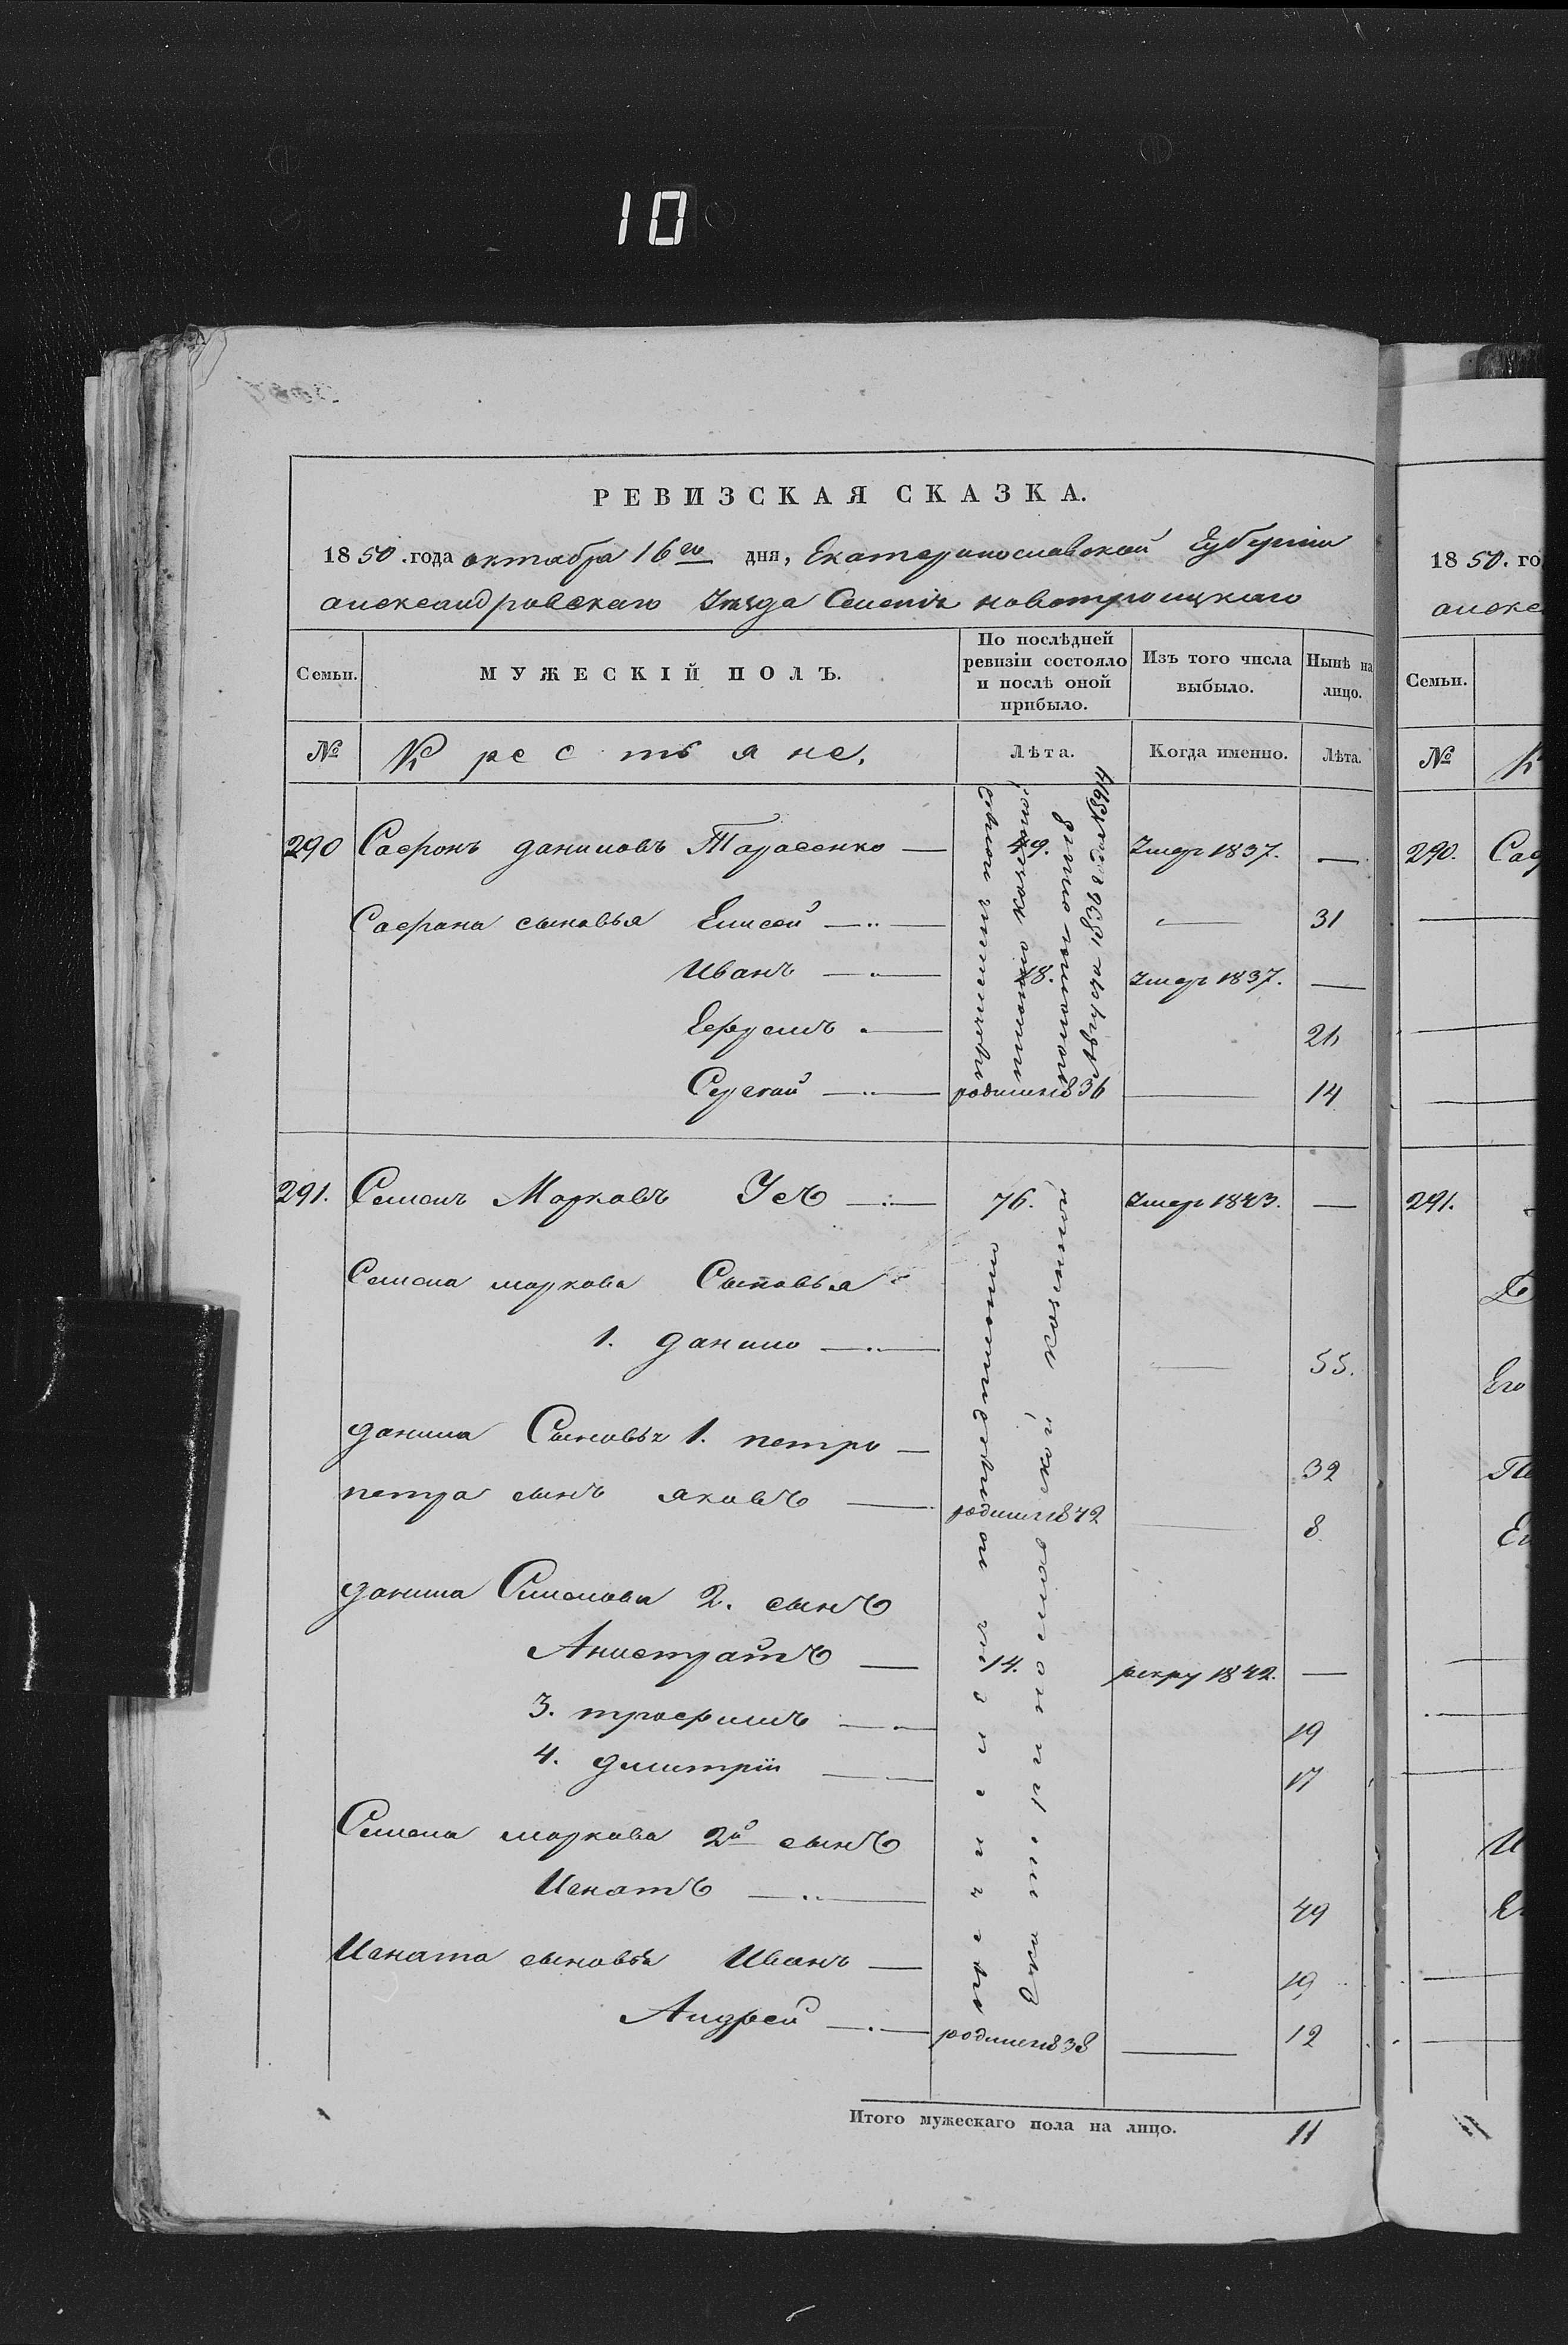 10
РЕВИЗСКАЯ СКАЗКА.
1850.года октября 16го дня, Екатеринославской Губерніи
александровскаго Уѣзда Селенія новотроицкаго
Семьи. МУЖЕСКІЙ ПОЛЪ. По послѣдней ревизіи состояло и послѣ оной прибыло. Изъ того числа выбыло. Нынѣ на лицо.
№ Крестьяне. Лѣта. Когда именно. Лѣта.
290 Сафронъ даниловъ Тарасенко — 49. Умеръ 1837. —
Сафрона сыновья Елисей — — 31
Иванъ — 18. Умеръ 1837. —
Ефремъ — 26
Сергей — родился 1836 — 14
Августа 1836 года №3914
291. Семенъ Марковъ Усъ — 76. Умеръ 1843. —
Семена маркова Сыновья
1. данило — — 55.
данила Сыновья 1. петро — 32
петра сынъ яковъ — родился 1842 — 8
данила Семенова 2. сынъ
Анистратъ — 14. рекру 1842. —
3. трофимъ — 19
4. дмитрій — 17
Семена маркова 2й сынъ
Игнатъ — 49
Игната сыновья Иванъ — 19
Андрей — родился 1838 — 12
причисленъ по предписанію
Екатеринославской казенной
Итого мужескаго пола на лицо. 11
1850. го
алекс
Семьи.
№ К
290. Саф
291.
Его